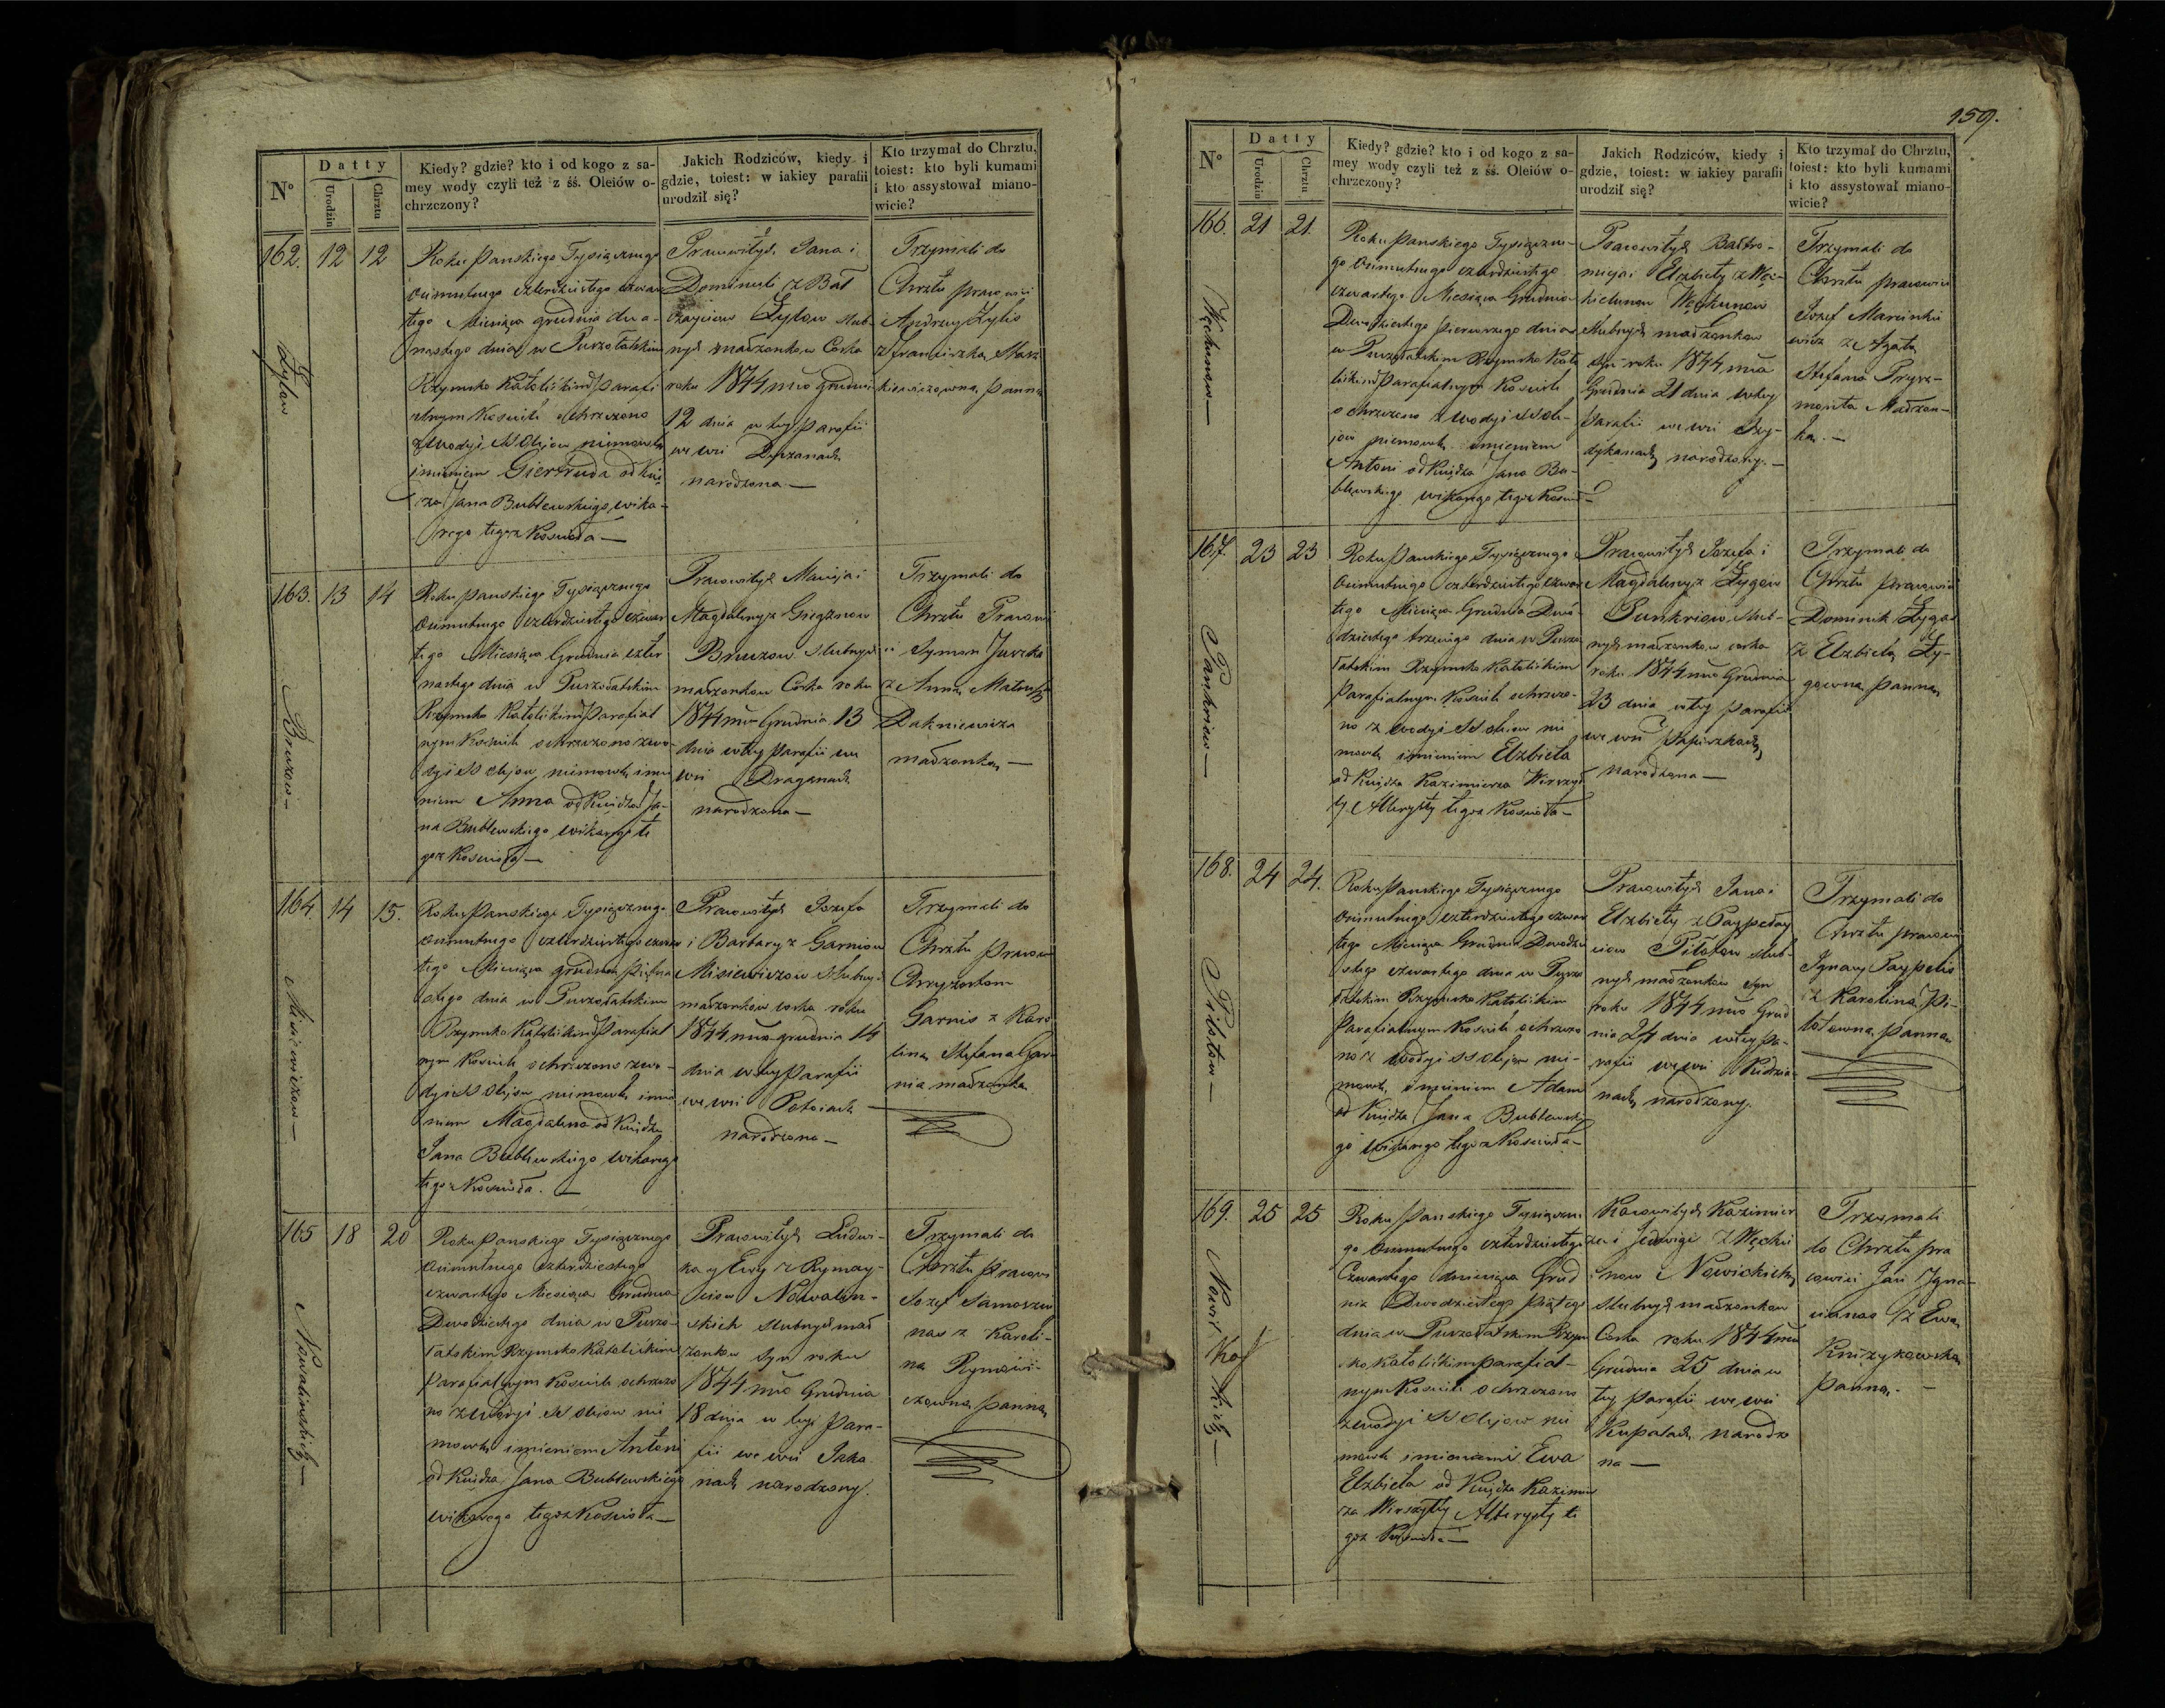 N°
Datty
Urodzin
Chrztu
Kiedy? gdzie? kto i od kogo z sa-
mey wody czyli też z śś. Oleiów o-
chrzczony?
Jakich Rodziców, kiedy i
gdzie, toiest: w iakiey parafii
urodził się?
Kto trzymał do Chrztu,
toiest: kto byli kumami
i kto assystował miano-
wicie?
162. 12 12
Roku Panskiego Tysiącznego
osimsetnego czterdziestego czwar
tego Miesiąca grudnia dwa-
nastego dnia w Puszołatskim
Rzymsko Katolickim Parafi
alnym Kosciele ochrzczono
z wody i SS Olejow niemowle
imieniem Giertruda od Księ
za Jana Bublewskiego wika-
rego tegoz Koscioła —
Pracowitych Jana i
Dominiceli z Bał
Zylow slub-
nych małzonkow Corka
roku 1844 mca grudnia
12 dnia w tey Parafii
we wsi
narodzona —
Trzymali do
Chrztu pracowici
Andrzey Zylis
z Franciszką
Panną
163. 13 14
Roku Panskiego Tysiącznego
osimsetnego czterdziestego czwar
tego Miesiąca Grudnia czter
nastego dnia w Puszołatskim
Rzymsko Katolickim Parafial
nym Kosciele ochrzczono z wo-
dy i SS olejow niemowle imie
niem Anna od Księdza Ja-
na Bublewskiego wikarego te
goz Koscioła —
Pracowitych Macieja i
Magdaleny z
slubnych
małzonkow Corka roku
1844 mca Grudnia 13
dnia w tey Parafii we
wsi Draganach
narodzona —
Trzymali do
Chrztu Pracowi
ci Symon Juszka
z Anną Mateusza
małzonką —
164. 14 15.
Roku Panskiego Tysiącznego
osimsetnego czterdziestego czwar
tego Miesiąca grudnia Piętna
stego dnia w Puszołatskim
Rzymsko Katolickim Parafial
nym Kosciele ochrzczono z wo-
dy i SS Olejow niemowle imie
niem Magdalena od Księdza
Jana Bublewskiego wikarego
tegoz Koscioła. —
Pracowitych Jozefa
i Barbary z Garniow
Misiewiczow slubnych
małzonkow corka roku
1844 mca grudnia 14
dnia w tey Parafii
we wsi
narodzona —
Trzymali do
Chrztu Pracowi
Chryzostom
Garnis z Karo
liną Stefana Gar
nia małzonką
165 18 20
Roku Panskiego Tysiącznego
osimsetnego czterdziestego
czwartego Miesiąca Grudnia
Dwudziestego dnia w Puszo-
łatskim Rzymsko Katolickim
Parafialnym Kosciele ochrzczo
no z wody i SS olejow nie
mowle imieniem Antoni
od Księdza Jana Bublewskiego
wikarego tegoz Koscioła —
Pracowitych Ludwi-
ka y Ewy z Rymay-
ciow Nowalin-
skich slubnych mał
zonkow Syn roku
1844 mca Grudnia
18 dnia w tey Para-
fii we wsi
nach narodzony.
Trzymali do
Chrztu Pracowi
Jozef
z Karoli-
ną
panną
Nowalinskich —
159.
N°
Datty
Urodzin
Chrztu
Kiedy? gdzie? kto i od kogo z sa-
mey wody czyli też z śś. Oleiów o-
chrzczony?
Jakich Rodziców, kiedy i
gdzie, toiest: w iakiey parafii
urodził się?
Kto trzymał do Chrztu,
toiest: kto byli kumami
i kto assystował miano-
wicie?
166. 21 21.
Roku Panskiego Tysiączne-
go osimsetnego czterdziestego
czwartego Miesiąca Grudnia
Dwudziestego pierwszego dnia
w Puszołatskim Rzymsko Kato
lickim Parafialnym Kosciele
ochrzczono z wody i SS ole-
jow niemowle imieniem
Antoni od Księdza Jana Bu-
blewskiego wikarego tegoz Koscioła
Pracowitych Bałtro-
mieja i Elzbiety
slubnych małzonkow
syn roku 1844 mca
Grudnia 21 dnia w tey
Parafii we wsi
narodzony. —
Trzymali do
Chrztu pracowici
Jozef Marcinkie
wicz z Agatą
Stefana
Małzon-
ką. —
167. 23 23
Roku Panskiego Tysiącznego
osimsetnego czterdziestego czwar
tego Miesiąca Grudnia Dwu-
dziestego trzeciego dnia w Puszo
łatskim Rzymsko Katolickim
Parafialnym Kosciele ochrzczo-
no z wody i SS olejow nie
mowle imieniem Elzbieta
od Księdza Kazimierza Wirszył
ły Alterysty tegoz Koscioła —
Pracowitych Jozefa i
Magdaleny z Zygow
Punkriow slub-
nych małzonkow corka
roku 1844 mca Grudnia
23 dnia w tey Parafii
we wsi
narodzona —
Trzymali do
Chrztu Pracowici
Dominik Zygas
z Elzbietą Zy-
gowną Panną
168. 24 24.
Roku Panskiego Tysiącznego
osimsetnego czterdziestego czwar
tego Miesiąca Grudnia Dwudzie
stego czwartego dnia w Puszo
łatskim Rzymsko Katolickim
Parafialnym Kosciele ochrzczo
no z wody i SS olejow nie-
mowle imieniem Adam
od Księdza Jana Bublewskie
go wikarego tegoz Koscioła —
Pracowitych Jana i
Elzbiety z
Piłotow slub-
nych małzonkow syn
roku 1844 mca Grud
nia 24 dnia w tey Pa-
rafii we wsi
nach narodzony.
Trzymali do
Chrztu pracowi
Ignacy Paypelis
z Karoliną Pi-
łotowną panną
169. 25 25
Roku Panskiego Tysiączne
go osimsetnego czterdziestego
Czwartego miesiąca Grud
nia Dwudziestego Piątego
dnia w Puszołatskim Rzym
sko Katolickim parafial-
nym Kosciele ochrzczono
z wody i SS Olejow nie
mowle imionami Ewa
Elzbieta od Księdza Kazimier
za Wirszyłły Alterysty te
goz Koscioła —
Pracowitych Kazimier
za i Jadwigi
Nowickich
slubnych małzonkow
Corka roku 1844 mca
Grudnia 25 dnia w
tey Parafii we wsi
Kupalach narodzo
na —
Trzymali
do Chrztu pra
cowici Jan Igna
z Ewą
panną. —